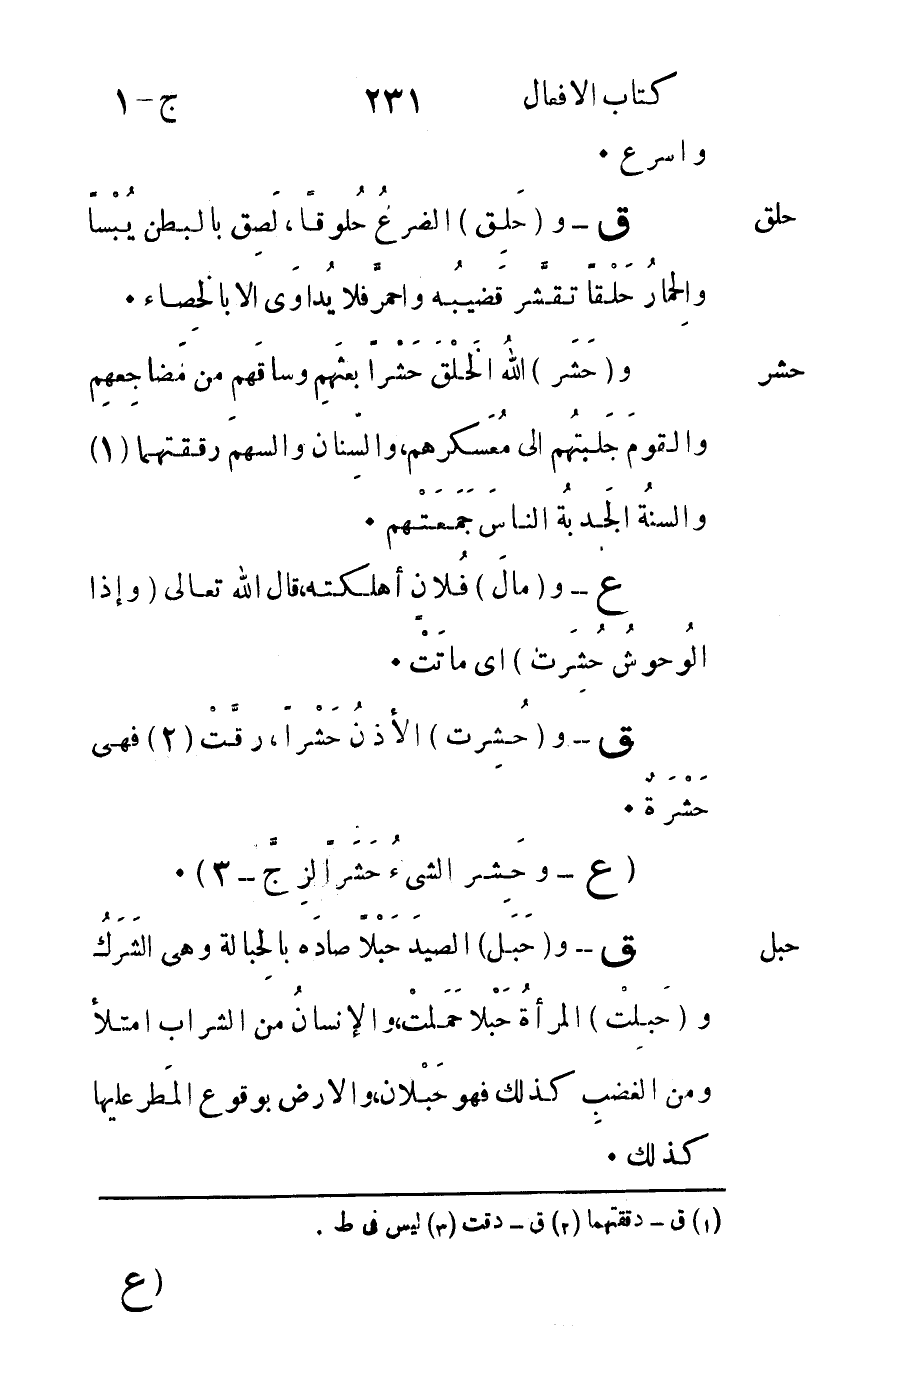 كتاب الافعال ٢٣١ ج-١
واسرع •
حلق ق - و (حَلِق) الضرعُ حُلوقًا، لَصِق بالبطن يُبْسًا
والحِمارُ حَلْقًا تقشَّر قَضيبُه واحمرَّ فلا يُداوَى الا بالخِصاء •
حشر و (حَشَر) اللهُ الخَلْقَ حَشْرًا بعثَهم وساقَهم من مَضاجِعهم
والقومَ جَلَبتُهم الى مُعَسكرهم، والسِّنان والسهمَ رققتهما (١)
والسنةُ الجَدبةُ الناسَ جَمَعَتْهم •
ع - و (مالَ) فُلان أهلكته، قال الله تعالى (وإذا
الوُحوشُ حُشِرَت) اى ماتَتْ •
ق - و (حُشِرت) الأذنُ حَشْرًا، رقَّتْ (٢) فهى
حَشْرَةٌ •
(ع - و حَشِر الشىءُ حَشَرًا لزِجَّ - ٣) •
حبل ق - و (حَبَل) الصيدَ حَبْلًا صادَه بالحِبالة وهى الشَرَكُ
و (حَبِلتْ) المرأةُ حَبْلا حَمَلتْ، والإنسانُ من الشراب امتلأ
ومن الغضبِ كذلك فهو حَبْلان، والارض بوقوع المَطر عليها
كذلك •
(١) ق - دققتهما (٢) ق - دقت (٣) ليس فى ط .
(ع